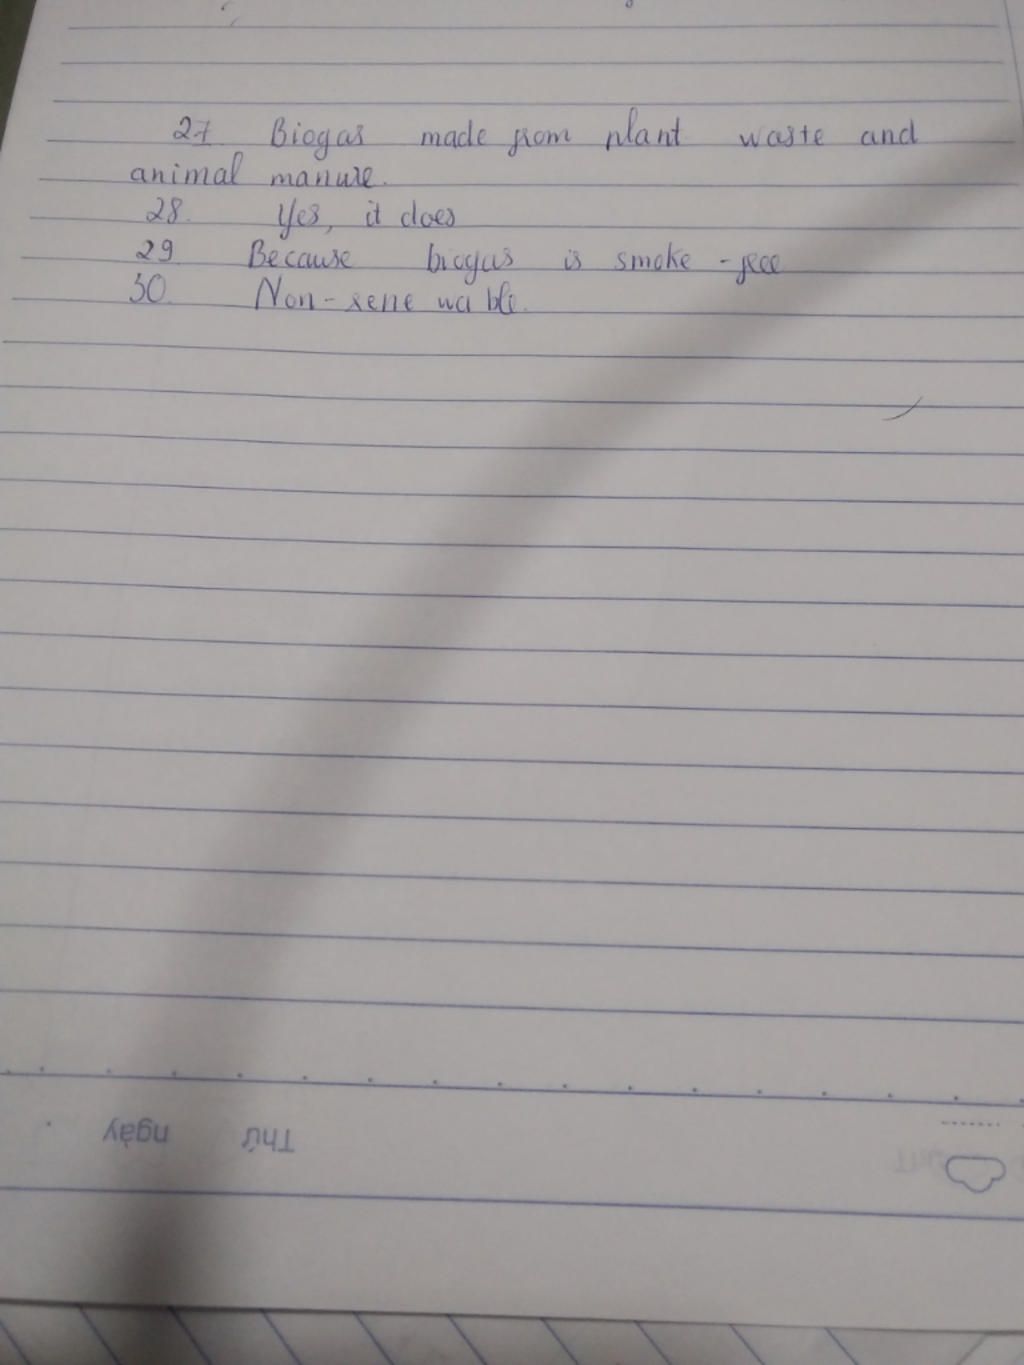 27 Biogas made from plant waste and
animal manure.
28. Yes, it does
29 Because biogas is smoke-free
30. Non-renewable.
Thứ ngày